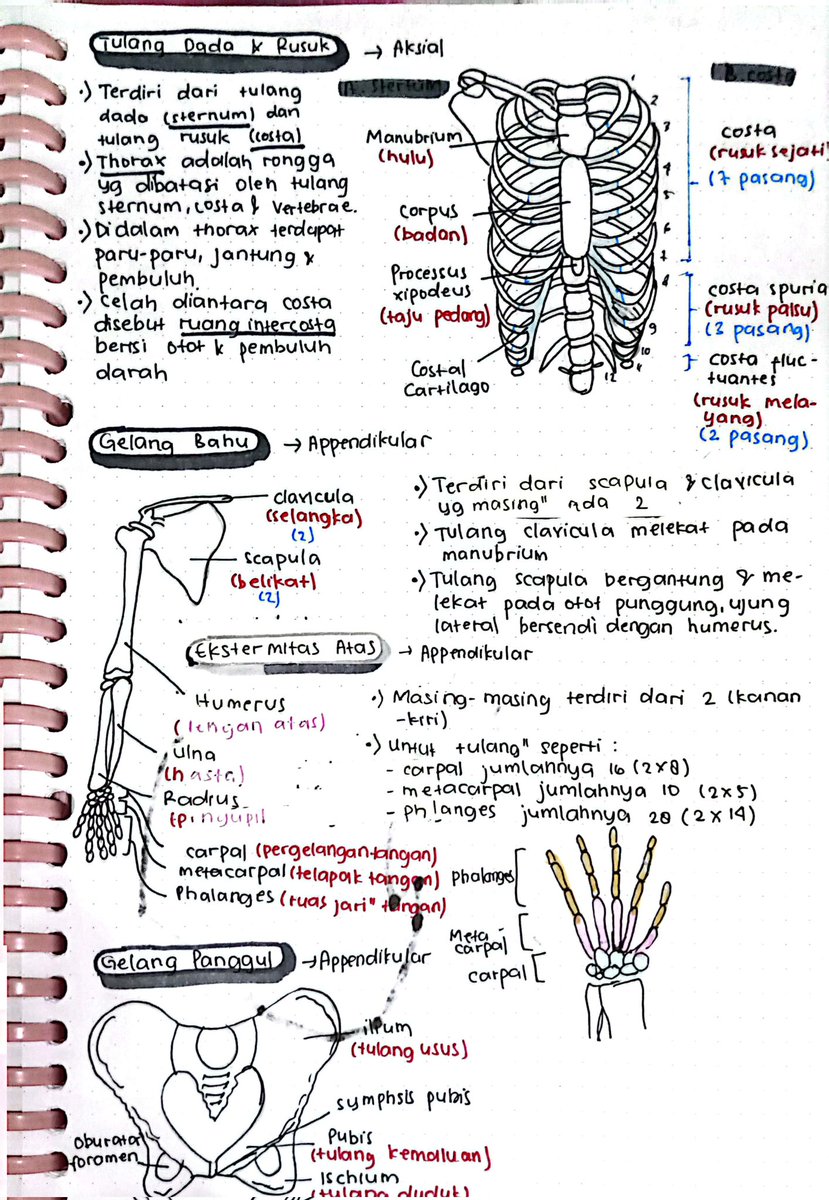 Tulang Dada & Rusuk → Aksial
•) Terdiri dari tulang
dada (sternum) dan
tulang rusuk (costa)
•) Thorax adalah rongga
yg dibatasi oleh tulang
sternum, costa & vertebrae.
•) Didalam thorax terdapat
paru-paru, jantung &
pembuluh.
•) Celah diantara costa
disebut ruang intercosta
berisi otot & pembuluh
darah
A. Stertum
Manubrium
(hulu)
Corpus
(badan)
Processus
xipodeus
(taju pedang)
Costal
Cartilago
1
2
3
4
5
6
7
8
9
10
11
12
B. costa
costa
(rusuk sejati)
(7 pasang)
costa spuria
(rusuk palsu)
(3 pasang)
costa fluc-
tuantes
(rusuk mela-
yang)
(2 pasang)
Gelang Bahu → Appendikular
clavicula
(selangka)
(2)
scapula
(belikat)
(2)
•) Terdiri dari scapula & clavicula
yg masing" ada 2
•) Tulang clavicula melekat pada
manubrium
•) Tulang scapula bergantung & me-
lekat pada otot punggung, ujung
lateral bersendi dengan humerus.
Ekstermitas Atas → Appendikular
Humerus
(lengan atas)
ulna
(hasta)
Radius
carpal (pergelangan tangan)
metacarpal (telapak tangan)
Phalanges (ruas jari" tangan)
•) Masing-masing terdiri dari 2 (kanan
-kiri)
•) untuk tulang" seperti :
- carpal jumlahnya 16 (2x8)
- metacarpal jumlahnya 10 (2x5)
- phlanges jumlahnya 28 (2x14)
Phalanges
Meta-
carpal
carpal
Gelang Panggul → Appendikular
ilium
(tulang usus)
symphsis pubis
Pubis
(tulang kemaluan)
Ischium
(tulang duduk)
Oburator
foramen